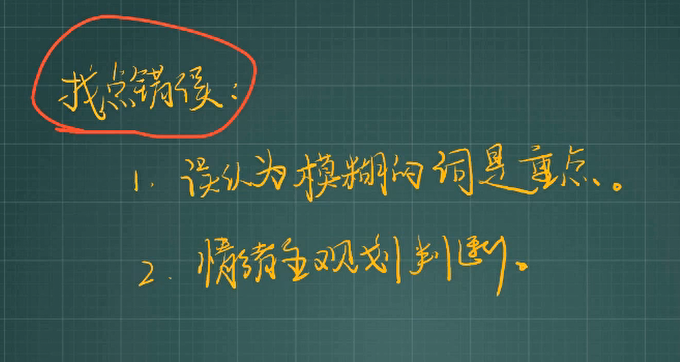 找点错误：
1. 误认为模糊的词是重点。
2. 情绪主观划判断。